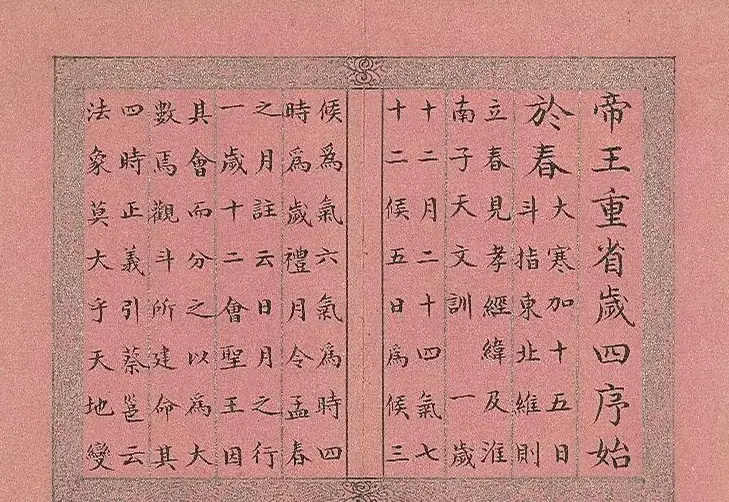 帝王重省歲四序始
於春大寒加十五日
斗指東北維則
立春見孝經緯及淮
南子天文訓　一歲
十二月二十四氣七
十二候五日爲候三
候爲氣六氣爲時四
時爲歲禮月令孟春
之月註云日月之行
一歲十二會聖王因
其會而分之以爲大
數焉觀斗所建命其
四時正義引蔡邕云
法象莫大乎天地變